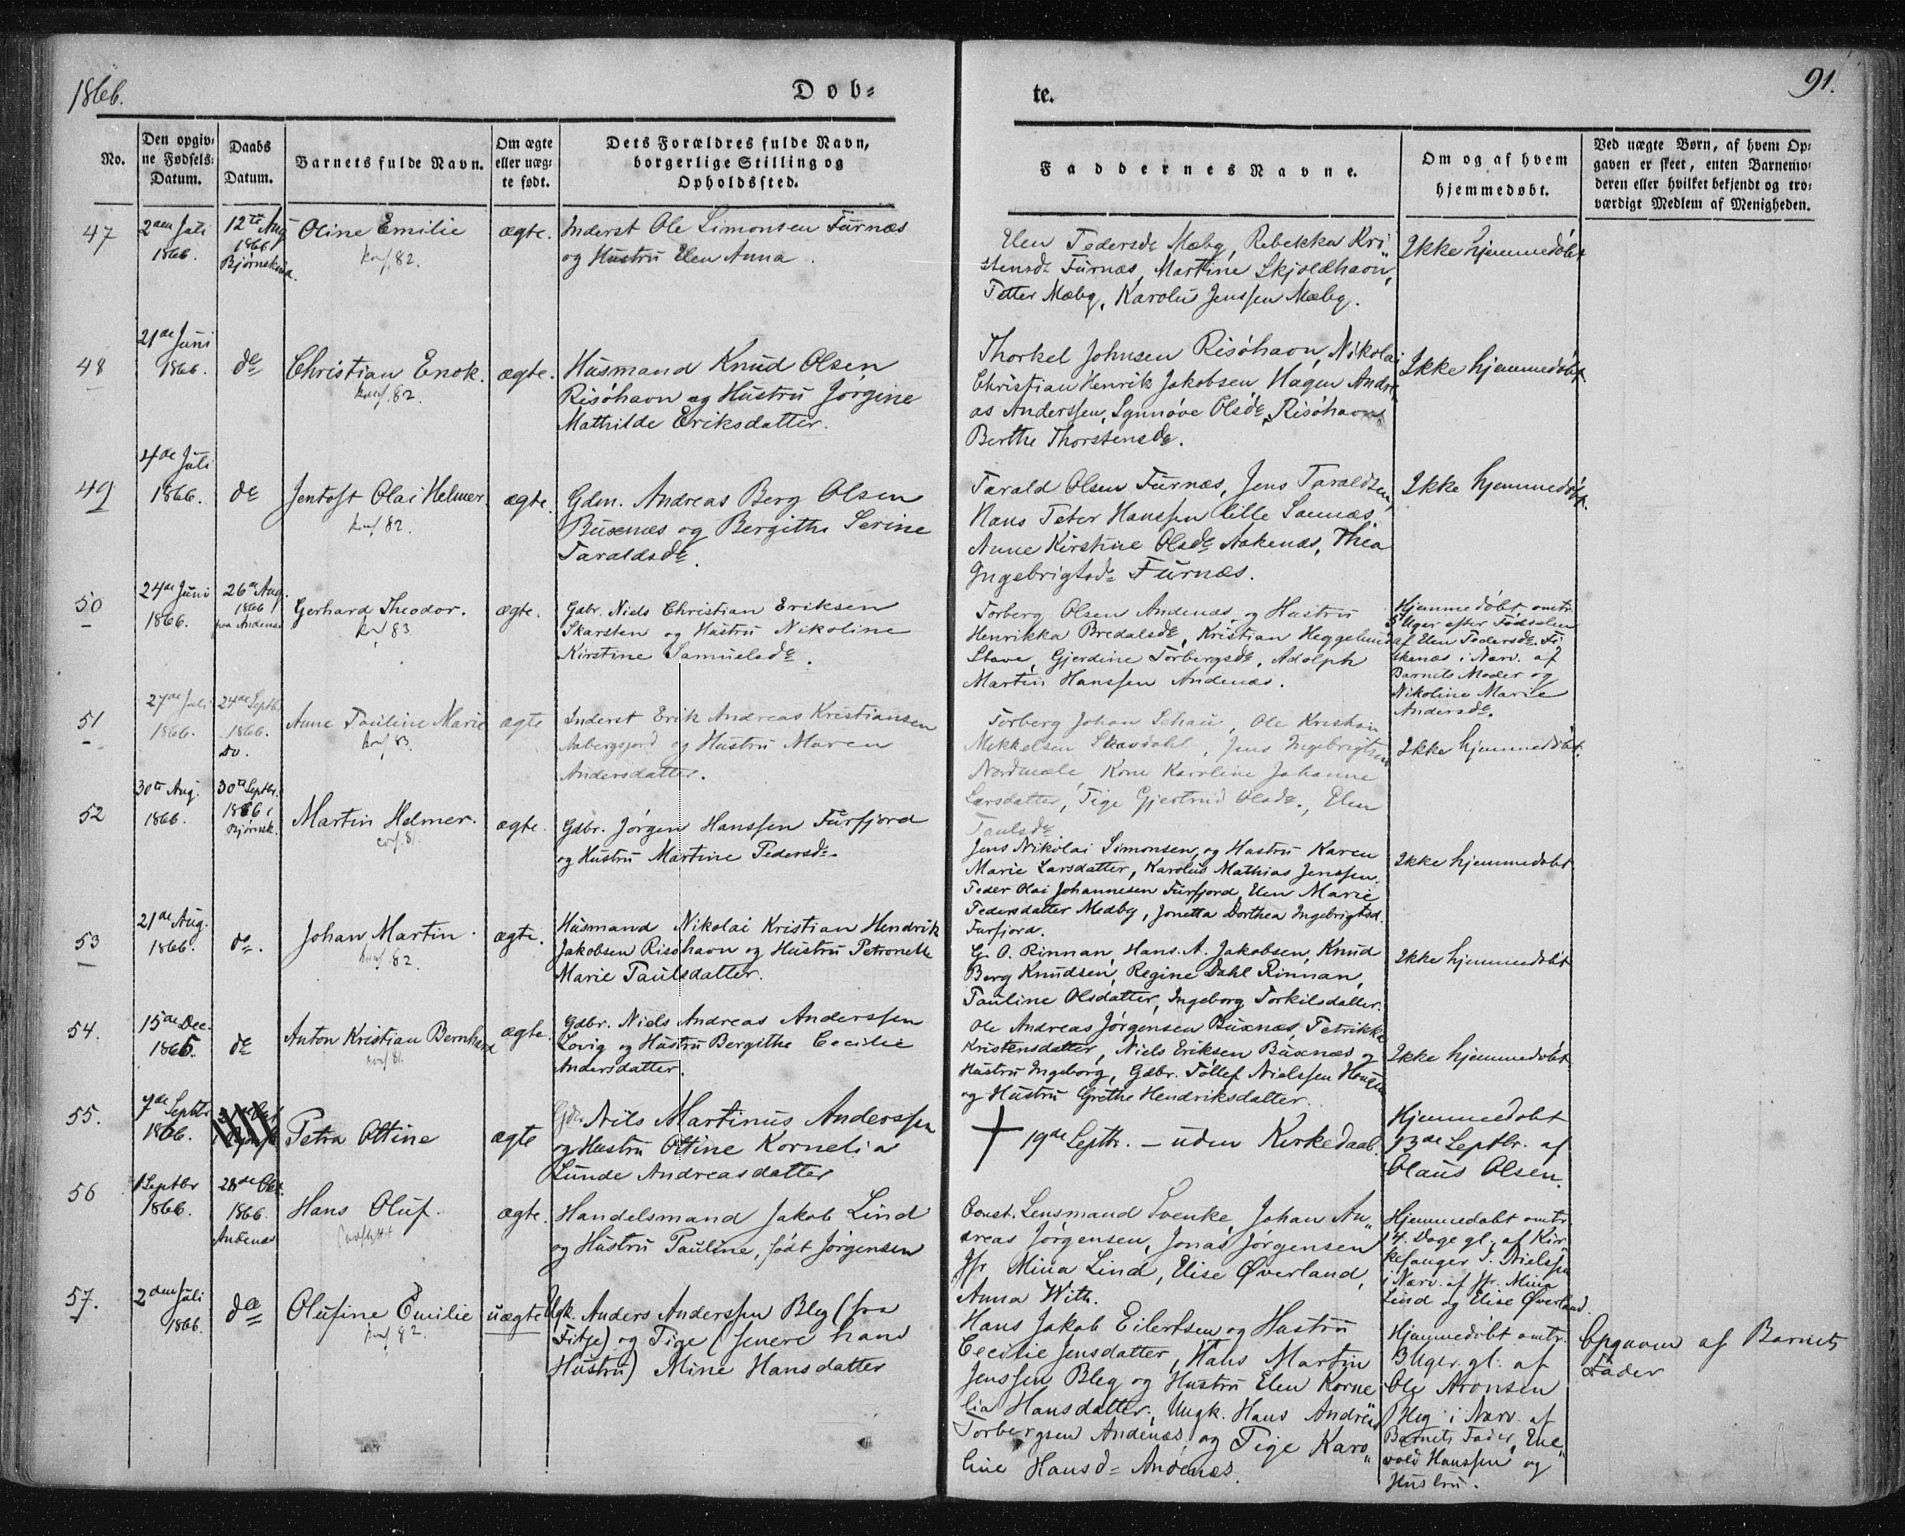 1866.
Døb-
te.
91.
No.
Den opgiv-
ne Fødsels-
Datum.
Daabs
Datum.
Barnets fulde Navn.
Om ægte
eller uæg-
te født.
Dets Forældres fulde Navn,
borgerlige Stilling og
Opholdssted.
Faddernes Navne.
Om og af hvem
hjemmedøbt.
Ved uægte Børn, af hvem Op-
gaven er skeet, enten Barnemo-
deren eller hvilket bekjendt og tro-
værdigt Medlem af Menigheden.
47
2den Juli
1866.
12te Aug
1866
Oline Emilie
konf. 82.
ægte.
Inderst Ole Simonsen Furnæs
og Hustru Elen Anna.
Elen Pedersd. Mæby, Rebekka Kri-
stensd. Furnæs, Martine Skjoldhavn,
Petter Mæby, Karolus Jenssen Mæby.
Ikke hjemmedøbt
48
21de Juni
1866.
do
Christian Enok.
konf. 82.
ægte.
Husmand Knud Olsen
Risøhavn og Hustru Jørgine
Mathilde Eriksdatter.
Thorkel Johnsen Risøhavn, Nikolai
Christian Henrik Jakobsen, Hagen Andre-
as Anderssen, Synnøve Olsd. Risøhavn,
Berthe Thorstensd.
Ikke hjemmedøbt
49
4de Juli
1866.
do
Jentoft Olai Helmer
konf. 82.
ægte.
Gdm. Andreas Berg Olsen
Buxnæs og Bergithe Serine
Taraldsd.
Tarald Olsen Furnæs, Jens Taraldsen,
Hans Peter Hanssen lille Saunæs,
Anne Kirstine Olsd. Aakenæs, Thea
Ingebrigtsd. Furnæs.
Ikke hjemmedøbt.
50
24de Juni
1866.
26de Aug.
1866
paa Andenæs
Gerhard Theodor.
konf 83
ægte.
Gdbr. Niels Christian Eriksen
Skarsten og Hustru Nikoline
Kirstine Samuelsd.
Torberg Olsen Andenæs og Hustru
Henrikka Bredalsd., Kristian Heggelund
Stave, Gjerdine Torbergsd., Adolph
Martin Hanssen Andenæs.
Hjemmedøbt omtr.
5 Uger efter Fødselen
af Elen Pedersd. Fi-
skenæs i Nærv. af
Barnets Moder og
Nikoline Marie
Andersd.
51
27de Juli
1866.
24de Septbr
1866.
Do.
Anne Pauline Marie
konf. 83.
ægte
Inderst Erik Andreas Kristiansen
Aabergsjord og Hustru Maren
Andersdatter.
Torberg Johan Schau, Ole Kristian
Mikkelsen Skavdahl, Jens Ingebrigtsen
Nordmæle, Kone Karoline Johanne
Larsdatter, Pige Gjertrud Olsd., Elen
Paulsd.
Ikke hjemmedøbt.
52
30te Aug.
1866.
30te Septbr.
1866 i
Bjørnsk.
Martin Helmer.
conf. 81.
ægte.
Gdbr. Jørgen Hanssen Furfjord
og Hustru Martine Pedersd.
Jens Nikolai Simonsen og Hustru Karen
Marie Larsdatter, Karolus Mathias Jenssen,
Peder Olai Johannesen Furfjord, Elen Marie
Pedersdatter Medby, Jonetta Dorthea Ingebrigtsd.
Furfjord.
Ikke hjemmedøbt.
53
21de Aug.
1866.
do.
Johan Martin.
konf. 82
ægte.
Husmand Nikolai Kristian Hendrik
Jakobsen Risøhavn og Hustru Petronelle
Marie Paulsdatter.
G. O. Rinnan, Hans A. Jakobsen, Knud
Berg Knudsen, Regine Dahl Rinnan,
Pauline Olsdatter, Ingeborg Torkilsdatter.
Ikke hjemmedøbt
54.
15de Dec.
1865.
do
Anton Kristian Bernhard
konf 81.
ægte.
Gdbr. Niels Andreas Anderssen
Lovig og Hustru Bergithe Cecilie
Andersdatter.
Ole Andreas Jørgensen Buxnæs, Petrikke
Kristensdatter, Niels Eriksen Buxnæs og
Hustru Ingeborg, Gdbr. Tollef Nielssen Haugen
og Hustru Grethe Hendriksdatter.
Ikke hjemmedøbt
55.
7de Septbr
1866.
Petra Ottine
ægte
Gdbr. Nils Martinus Anderssen
og Hustru Ottine Kornelia
Lunde Andreasdatter
19de Septbr. – uden Kirkedaab.
Hjemmedøbt
13de Septbr. af
Olaus Olsen.
56
1 Septbr
1866.
28de Oct.
1866.
Andenæs
Hans Oluf.
ægte.
Handelsmand Jakob Lind
og Hustru Pauline, født Jørgensen
Const. Lensmand Svenke, Johan An-
dreas Jørgensen, Jonas Jørgensen
Jfr Mina Lind, Elise Øverland,
Anna With.
Hjemmedøbt omtr.
14 Dage gl. af Kir-
kesanger J. Nielssen
i Nærv. af Jfr. Mina
Lind og Elise Øverland.
57.
2den Juli
1866.
do
Olufine Emilie
konf 82.
uægte
Ugk. Anders Anderssen Bleg (fra
Fitje) og Pige (senere hans
Hustru) Mine Hansdatter
Hans Jakob Eilertsen og Hustru
Cecilie Jensdatter, Hans Martin
Jenssen Bleg og Hustru Elen Korne
lia Hansdatter, Ungk. Hans Andreas
Torbergsen Andenæs og Pige Karo-
line Hansd. Andenæs.
Hjemmedøbt omtr.
3 Uger gl. af
Ole Aronsen
Bleg i Nærv. af
Barnets Fader, Ene-
vold Hanssen og
Hustru.
Opgaven af Barnets
Fader